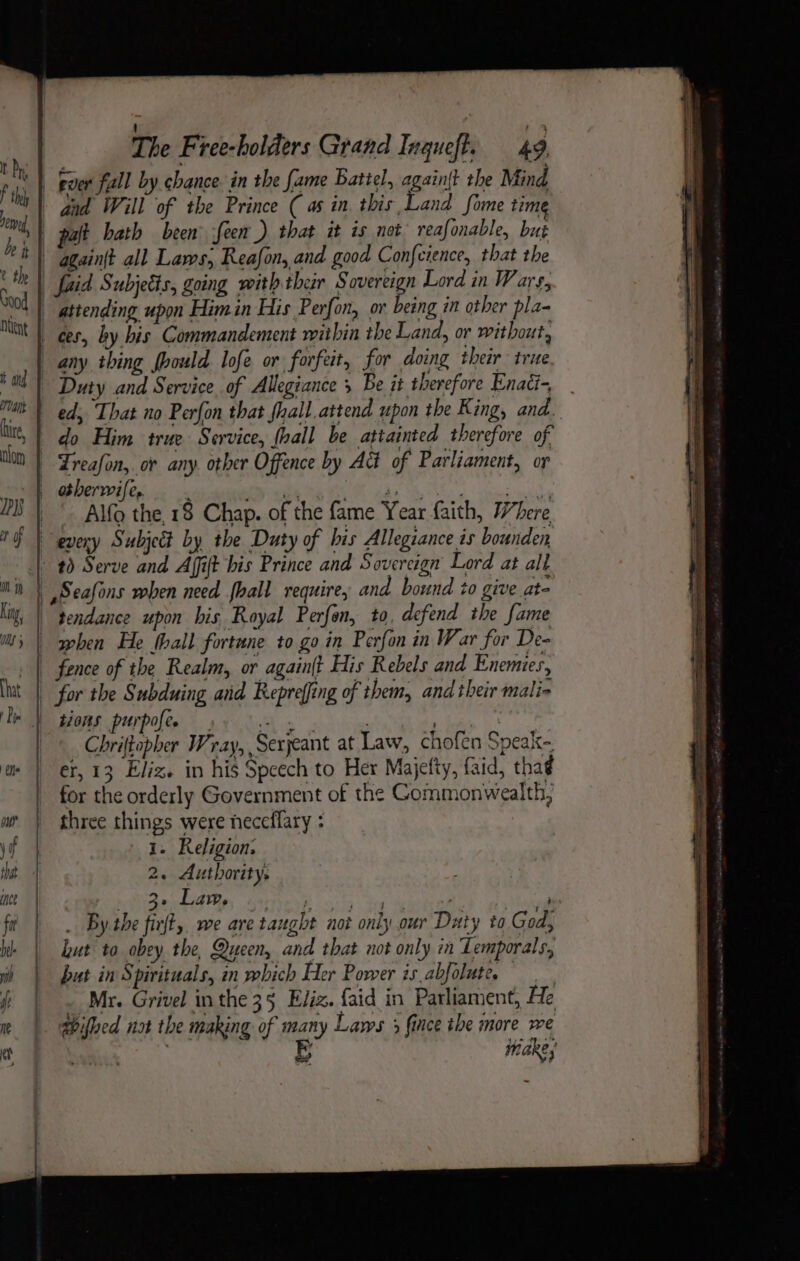 The Free-holders Grand Inqueſt. 49
ever fall by chance in the ſame Battel, againſt the Mind
and Will of the Prince (as in this Land ſome time
paſt hath been ſeen) that it is not reaſonable, but
againſt all Laws, Reaſon, and good Conſcience, that the
ſaid Subjects, going with their Sovereign Lord in Wars,
attending upon Him in His Perſon, or being in other pla-
ces, by his Commandement within the Land, or without,
any thing ſhould loſe or forfeit, for doing their true
Duty and Service of Allegiance; Be it therefore Enact-
ed, That no Perſon that ſhall attend upon the King, and
do Him true Service, ſhall be attainted therefore of
Treaſon, or any other Offence by Act of Parliament, or
otherwiſe.
Alſo the 18 Chap. of the ſame Year ſaith, Where
every Subject by the Duty of his Allegiance is bounden
to Serve and Aſſiſt his Prince and Sovereign Lord at all
Seaſons when need ſhall require, and bound to give at-
tendance upon his Royal Perſon, to defend the ſame
when He ſhall fortune to go in Perſon in War for De-
fence of the Realm, or againſt His Rebels and Enemies,
for the Subduing and Repreſſing of them, and their mali-
tious purpoſe.
Chriſtopher Wray, Serjeant at Law, choſen Speak-
er, 13 Eliz. in his Speech to Her Majeſty, ſaid, that
for the orderly Government of the Commonwealth,
three things were neceſſary:
1. Religion.
2. Authority.
3. Law.
By the firſt, we are taught not only our Duty to God,
but to obey the Queen, and that not only in Temporals,
but in Spirituals, in which Her Power is abſolute.
Mr. Grivel in the 35 Eliz. ſaid in Parliament, He
wiſhed not the making of many Laws; ſince the more we
E make,